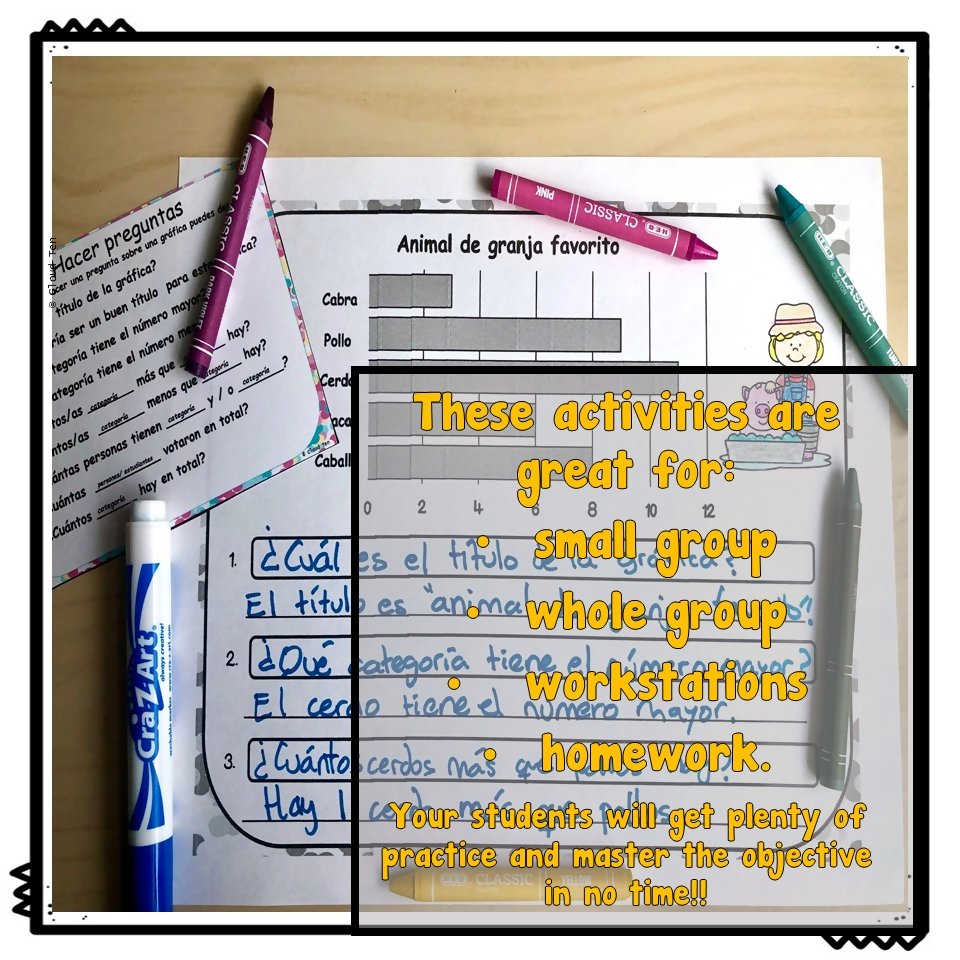 Hacer preguntas
cer una pregunta sobre una gráfica puedes de
título de la gráfica?
ría ser un buen título para esta gráfica?
tegoría tiene el número mayor
ategoría tiene el número me
tos/as categoría más que categoría hay?
ntos/as categoría menos que categoría hay?
ántas personas tienen categoría y / o categoría ?
uántas personas/ estudiantes votaron en total?
Cuántos categoría hay en total?
© Cloud Ten
© Cloud Ten
H-E-B CLASSIC DARK VIOLET
H-E-B CLASSIC PINK
H-E-B CLASSIC CRAYON
Animal de granja favorito
Cabra
Pollo
Cerdo
aca
Caball
0 2 4 6 8 10 12
1. ¿Cuál es el título de la gráfica?
El título es "animal de granja favorito"!
2. ¿Qué categoría tiene el número mayor?
El cerdo tiene el número mayor.
3. ¿Cuántos cerdos más que pollos hay?
Hay 1 cerdo más que pollos.
Cra-Z-Art
always creative!
washable marker
These activities are
great for:
• small group
• whole group
• workstations
• homework.
Your students will get plenty of
practice and master the objective
in no time!!
H-E-B CLASSIC YELLOW